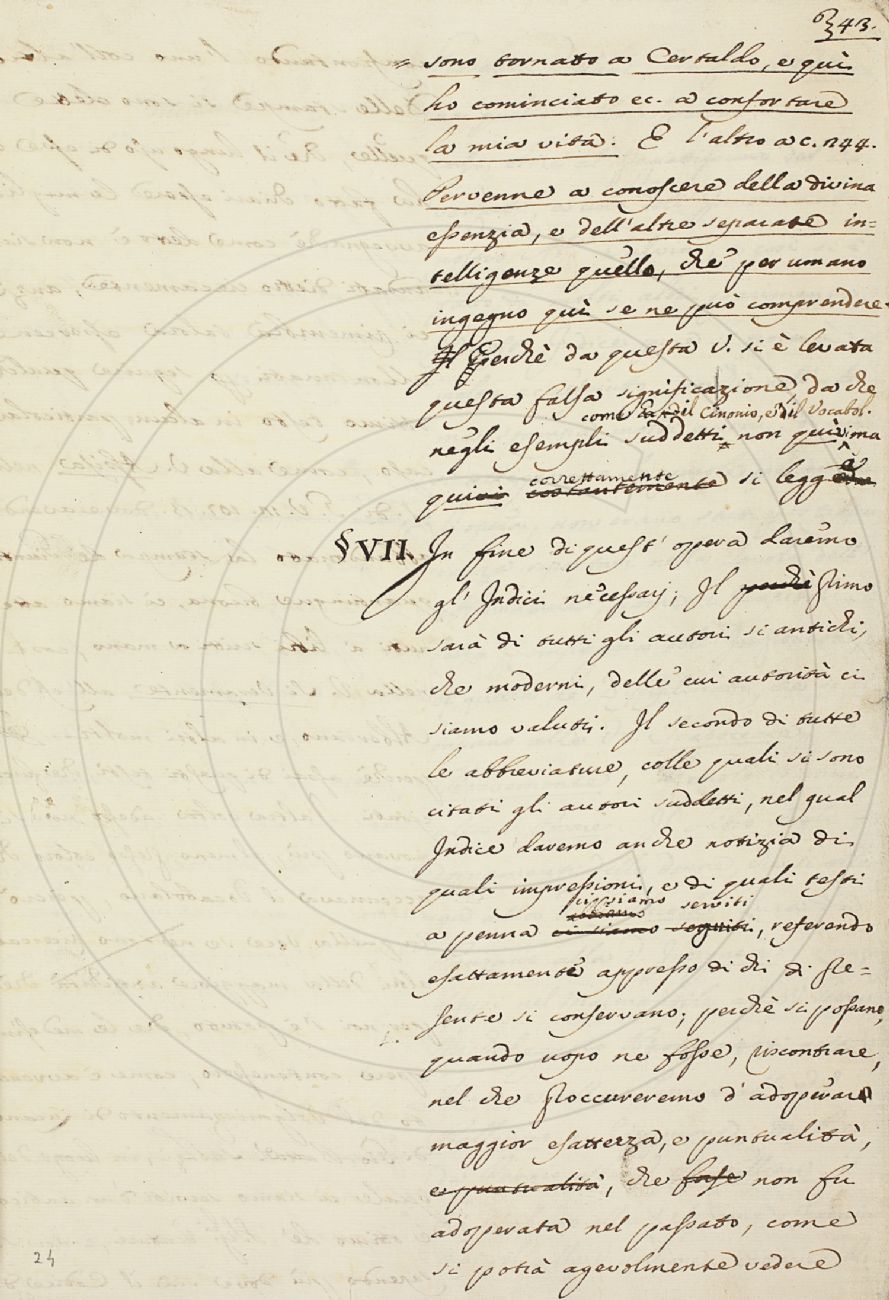 43.
= sono tornato a Certaldo, e quì
ho cominciato ec. a confortare
la mia vita. E l'altro a c. 244.
Pervenne a conoscere della divina
essenzia, e dell'altre separate in=
telligenze quello, che per umano
ingegno quì se ne può comprendere.
Il Perchè da questa V. si è levata
questa falsa significazione, da che
come dal il Cinonio, e il Vocabol.
negli esempli suddetti non quivi, ma
correttamente
quivi costantemente si legge
§ VII. In fine di quest' opera daremo
gl' Indici necessarj; Il perchè primo
sarà di tutti gli autori sì antichi,
che moderni, delle cui autorità ci
siamo valuti. Il secondo di tutte
le abbreviature, colle quali si sono
citati gli autori suddetti, nel qual
Indice daremo anche notizia di
quali impressioni, e di quali testi
ci siamo serviti
abbiamo
a penna ci siamo seguiti, referendo
esattamente appresso di chi di pre=
sente si conservano; perchè si possano,
quando uopo ne fosse, riscontrare,
nel che proccureremo d' adoperare
maggior esattezza, e puntualità,
e puntualità, che forse non fu
adoperata nel passato, come
si potrà agevolmente vedere
24